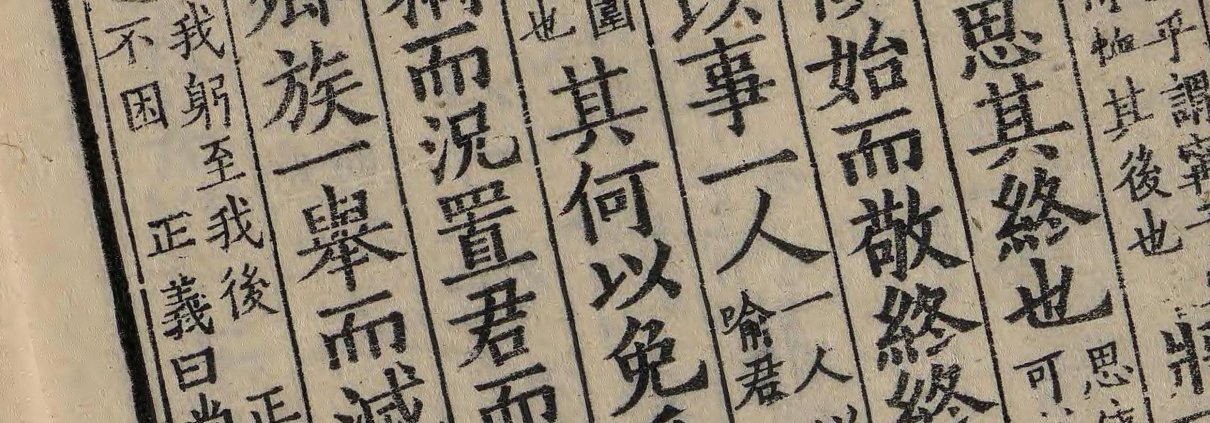 乎謂甯
恤其後也
將
思其終也
思
可
始而敬終終
以事一人
一人
喻君
圍
也
其何以免
而況置君而
卿族一舉而滅
我躬至我後
正
不困
正義曰